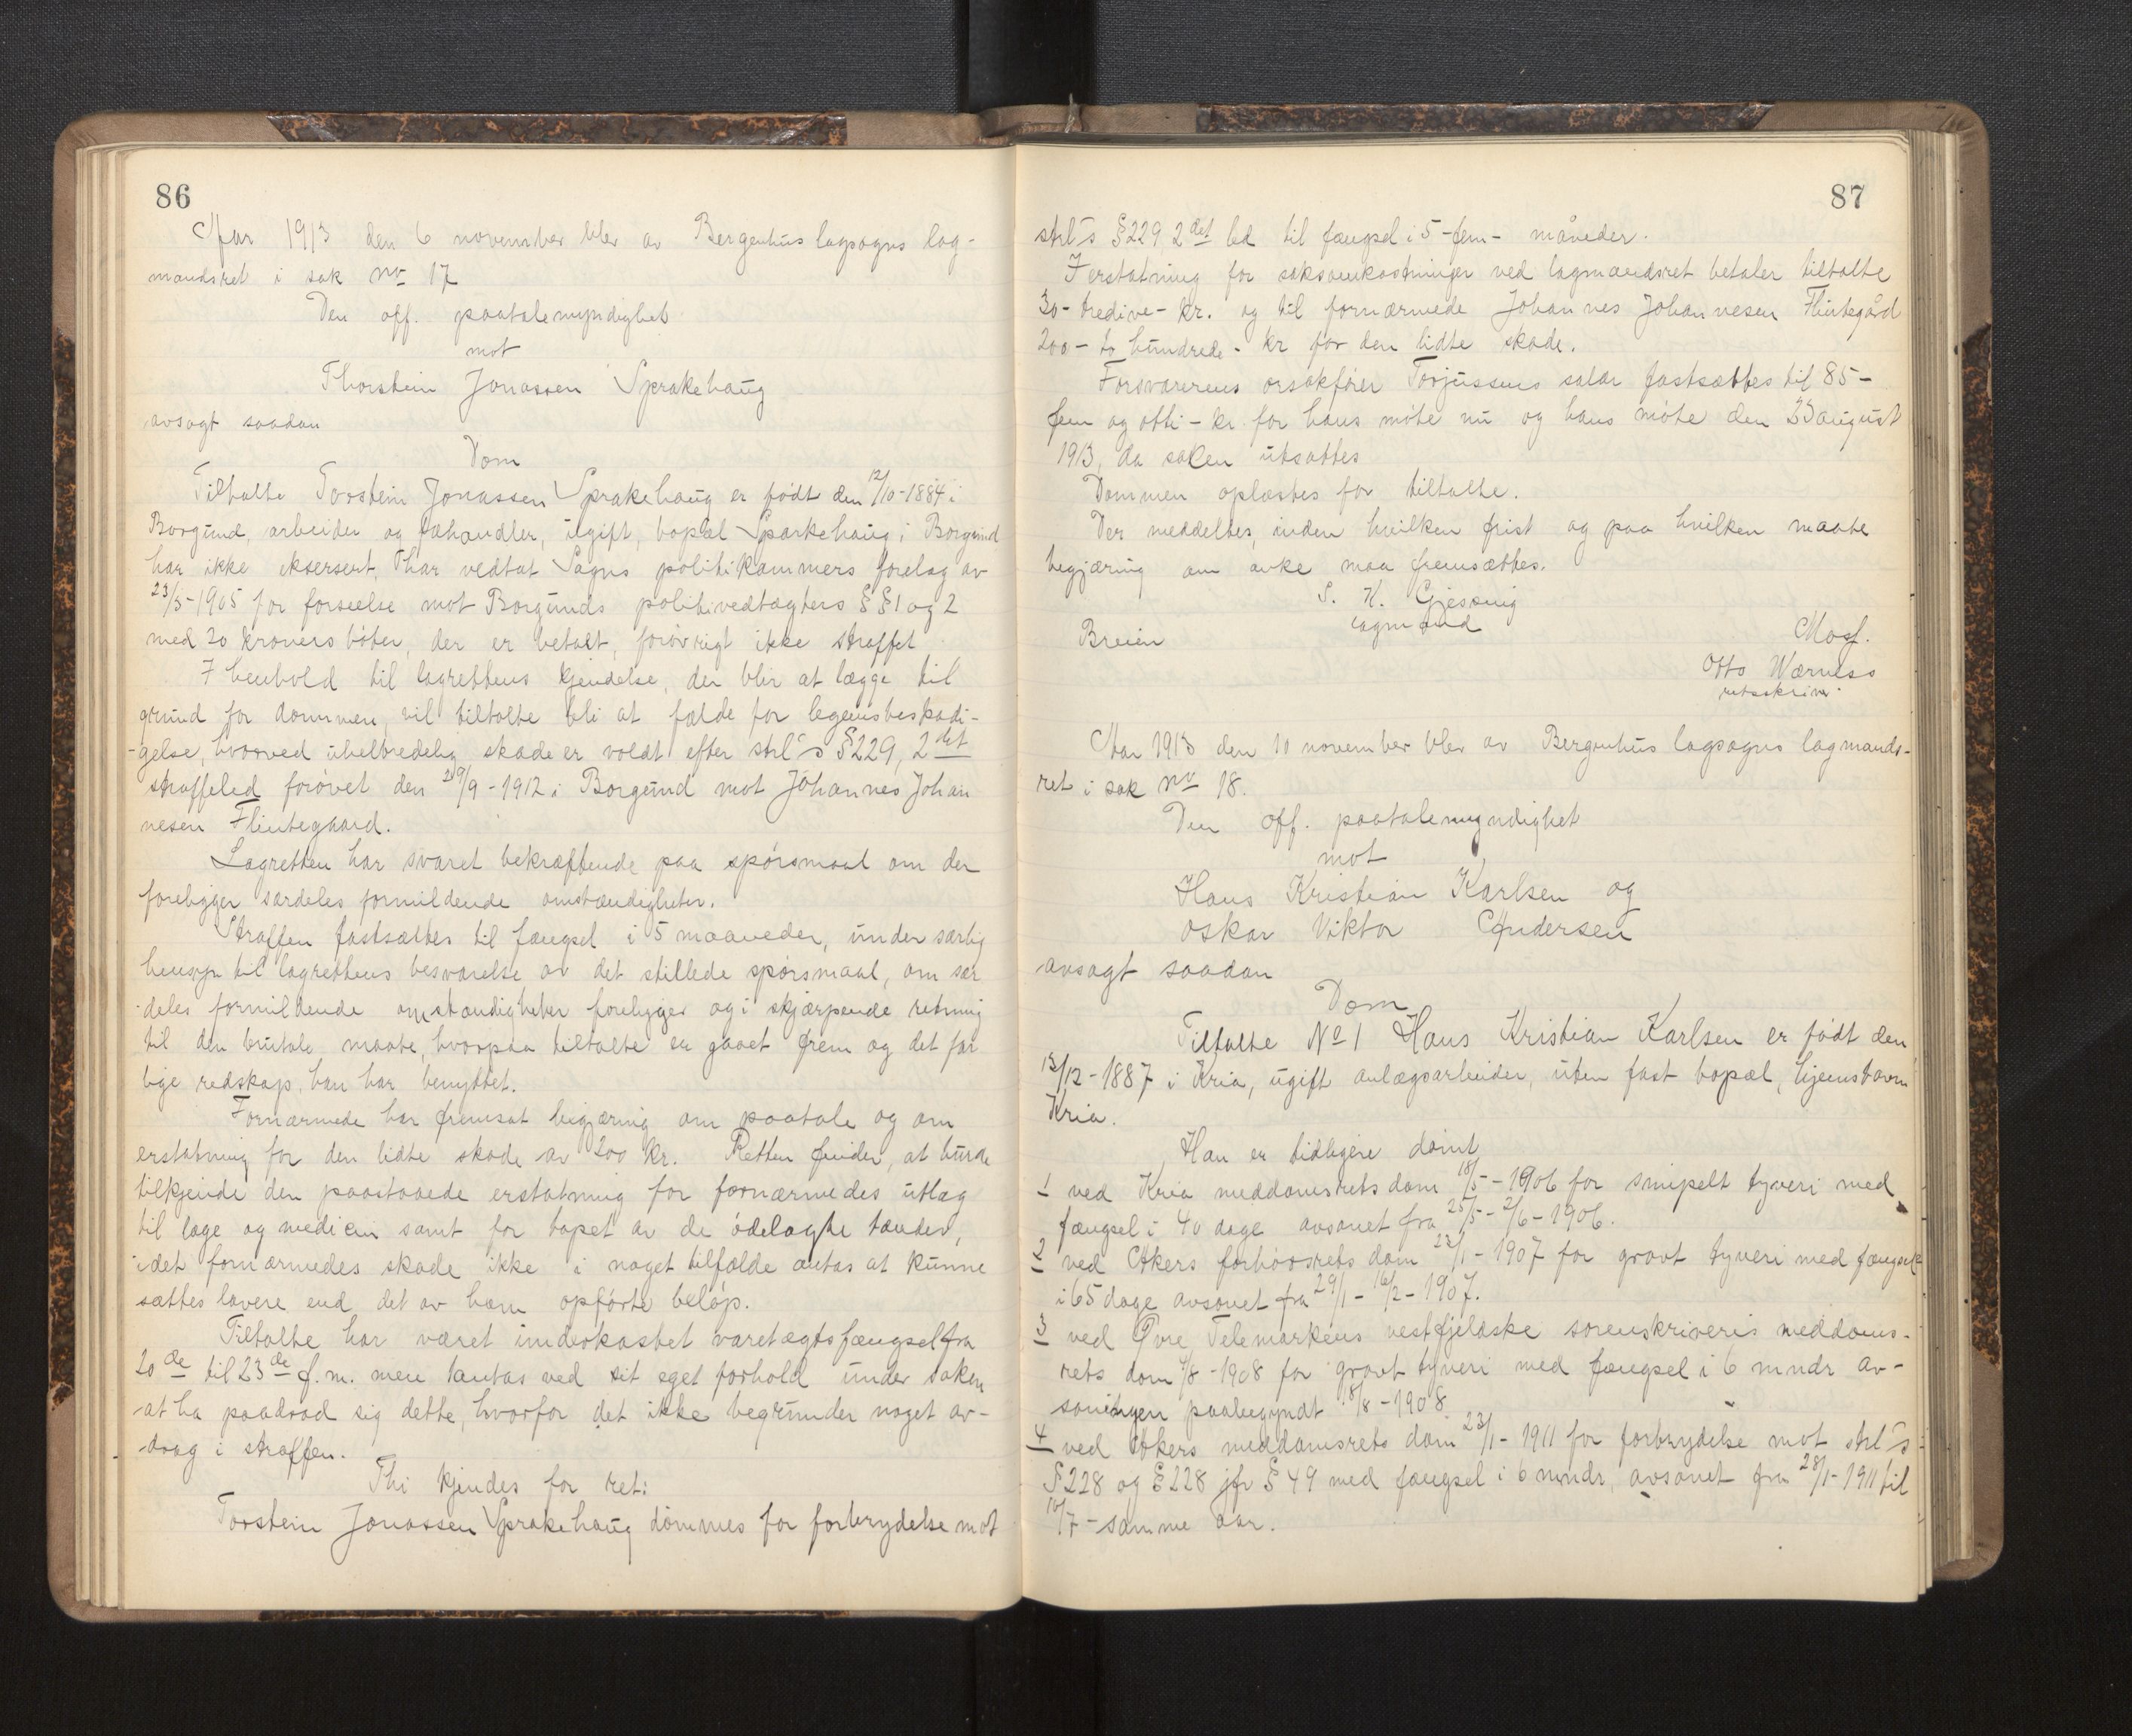 86
Aar 1913 den 6 november blev av Bergenhus lagsogns lag-
mandsret i sak No 17
Den off. paatalemyndighet
mot
Thorstein Jonassen Sprakehaug
avsagt saadan
Dom
Tiltalte Torstein Jonassen Sprakehaug er født den 12/10-1884 i
Borgund, arbeider og fæhandler, ugift, bopæl Sparkehaug i Borgund
har ikke eksersert, har vedtat Sogns politikammers forelæg av
23/3-1905 for forseelse mot Borgunds politivedtægters §§ 1 og 2
med 20 kroners bøter, der er betalt, forøvrigt ikke straffet
I henhold til lagrettens kjendelse, der blir at lægge til
grund for dommen, vil tiltalte bli at fælde for legemsbeskadi-
-gelse, hvorved uhelbredelig skade er voldt efter strl's § 229, 2det
straffeled forøvet den 29/9-1912 i Borgund mot Johannes Johan
nesen Flintegaard.
Lagretten har svaret bekræftende paa spørsmaal om der
foreligger særdeles formildende omstændigheter.
Straffen fastsættes til fængsel i 5 maaneder, under særlig
hensyn til lagrettens besvarelse av det stillede spørsmaal, om sær
-deles formildende omstændigheter foreligger og i skjærpende retning
til den brutale maate, hvorpaa tiltalte er gaaet frem og det far
lige redskap, han har benyttet.
Fornærmede har fremsat begjæring om paatale og om
erstatning for den lidte skade av 200 kr. Retten finder, at burde
tilkjende den paastaaede erstatning for fornærmedes utlæg
til læge og medicin samt for tapet av de ødelagte tænder,
idet fornærmedes skade ikke i noget tilfælde antas at kunne
sættes lavere end det av ham opførte beløp.
Tiltalte har været underkastet varetægtsfængsel fra
20de til 23de f.m. men antas ved sit eget forhold under saken
at ha paadrad sig dette, hvorfor det ikke begrunder noget av-
drag i straffen.
Thi kjendes for ret:
Torstein Jonassen Sprakehaug dømmes for forbrydelse mot
87
strl's § 229 2det led til fængsel i 5-fem- måneder.
I erstatning for saksomkostninger ved lagmandsret betaler tiltalte
30-tredive- kr. og til fornærmede Johannes Johannesen Flintegård
200- to hundrede- kr for den lidte skade.
Forsvarerens orsakfører Torjussens salær fastsættes til 85-
fem og otti- kr. for hans møte nu og hans møte den 23 august
1913, da saken utsattes
Dommen oplæstes for tiltalte.
Der meddeltes, inden hvilken frist og paa hvilken maate
begjæring om anke maa fremsættes.
S. H. Gjessing
lagmand
Breien
Mosf.
Otto Wærness
retsskriver.
Aar 1913 den 10 november blev av Bergenhus lagsogns lagmands-
ret i sak No 18.
Den off. paatalemyndighet
mot
Hans Kristian Karlsen og
Oskar Viktor Andersen
avsagt saadan
Dom
Tiltalte No 1 Hans Kristian Karlsen er født den
13/12-1887 i Kria, ugift anlægsarbeider, uten fast bopæl, hjemstavn
Kria.
Han er tidligere dømt
1 ved Kria meddomsrets dom 18/5-1906 for simpelt tyveri med
fængsel i 40 dage avsonet fra 25/5-2/6-1906.
2 ved Akers forhørsrets dom 23/1-1907 for grovt tyveri med fængsel
i 65 dage avsonet fra 29/1-16/2-1907.
3 ved Øvre Telemarkens vestfjeldske sorenskriveris meddoms-
rets dom 4/8-1908 for grovt tyveri med fængsel i 6 mndr av-
soningen paabegyndt 18/8-1908.
4 ved Akers meddomsrets dom 23/1-1911 for forbrydelse mot strl's
§ 228 og § 228 jfr § 49 med fængsel i 6 mndr, avsonet fra 28/1-1911 til
10/7- samme aar.